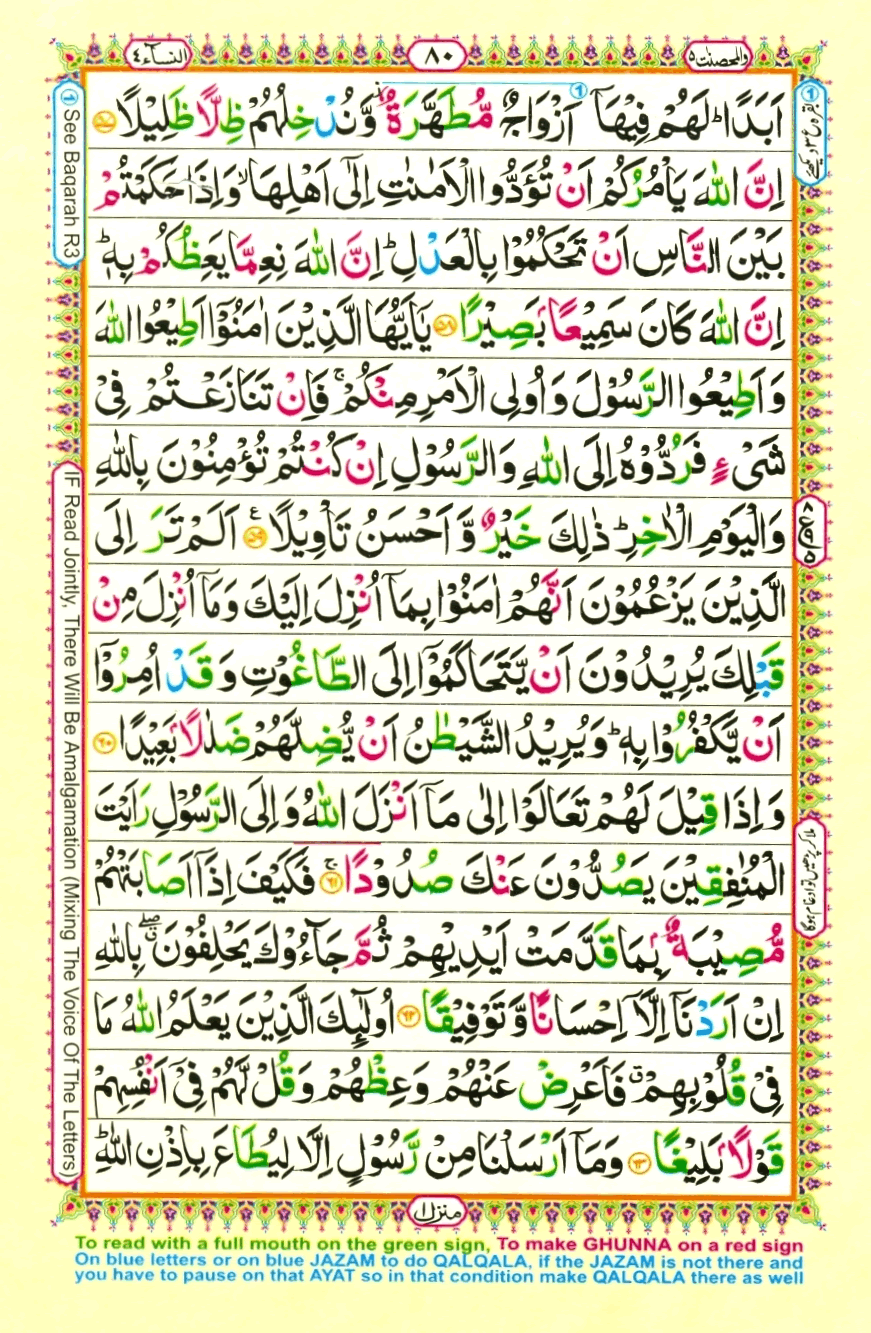 والمحصنت ۵
۸۰
النساۤء ۴
اَبَدًا ؕ لَهُمْ فِيْهَاۤ اَزْوَاجٌ مُّطَهَّرَةٌ ۫ وَّنُدْخِلُهُمْ ظِلًّا ظَلِيْلًا ۝۵۷
اِنَّ اللّٰهَ يَاْمُرُكُمْ اَنْ تُؤَدُّوا الْاَمٰنٰتِ اِلٰۤى اَهْلِهَا ۙ وَاِذَا حَكَمْتُمْ
بَيْنَ النَّاسِ اَنْ تَحْكُمُوْا بِالْعَدْلِ ؕ اِنَّ اللّٰهَ نِعِمَّا يَعِظُكُمْ بِهٖ ؕ
اِنَّ اللّٰهَ كَانَ سَمِيْعًۢا بَصِيْرًا ۝۵۸ يٰۤاَيُّهَا الَّذِيْنَ اٰمَنُوْۤا اَطِيْعُوا اللّٰهَ
وَاَطِيْعُوا الرَّسُوْلَ وَاُولِى الْاَمْرِ مِنْكُمْ ۚ فَاِنْ تَنَازَعْتُمْ فِىْ
شَىْءٍ فَرُدُّوْهُ اِلَى اللّٰهِ وَالرَّسُوْلِ اِنْ كُنْتُمْ تُؤْمِنُوْنَ بِاللّٰهِ
وَالْيَوْمِ الْاٰخِرِ ؕ ذٰلِكَ خَيْرٌ وَّاَحْسَنُ تَاْوِيْلًا ۝۵۹ ع اَلَمْ تَرَ اِلَى
الَّذِيْنَ يَزْعُمُوْنَ اَنَّهُمْ اٰمَنُوْا بِمَاۤ اُنْزِلَ اِلَيْكَ وَمَاۤ اُنْزِلَ مِنْ
قَبْلِكَ يُرِيْدُوْنَ اَنْ يَّتَحَاكَمُوْۤا اِلَى الطَّاغُوْتِ وَقَدْ اُمِرُوْۤا
اَنْ يَّكْفُرُوْا بِهٖ ؕ وَيُرِيْدُ الشَّيْطٰنُ اَنْ يُّضِلَّهُمْ ضَلٰلًۢا بَعِيْدًا ۝۶۰
وَاِذَا قِيْلَ لَهُمْ تَعَالَوْا اِلٰى مَاۤ اَنْزَلَ اللّٰهُ وَاِلَى الرَّسُوْلِ رَاَيْتَ
الْمُنٰفِقِيْنَ يَصُدُّوْنَ عَنْكَ صُدُوْدًا ۝۶۱ ۚ فَكَيْفَ اِذَاۤ اَصَابَتْهُمْ
مُّصِيْبَةٌۢ بِمَا قَدَّمَتْ اَيْدِيْهِمْ ثُمَّ جَآءُوْكَ يَحْلِفُوْنَ ۖق بِاللّٰهِ
اِنْ اَرَدْنَاۤ اِلَّاۤ اِحْسَانًا وَّتَوْفِيْقًا ۝۶۲ اُولٰٓئِكَ الَّذِيْنَ يَعْلَمُ اللّٰهُ مَا
فِىْ قُلُوْبِهِمْ ۗ فَاَعْرِضْ عَنْهُمْ وَعِظْهُمْ وَقُلْ لَّهُمْ فِىْۤ اَنْفُسِهِمْ
قَوْلًۢا بَلِيْغًا ۝۶۳ وَمَاۤ اَرْسَلْنَا مِنْ رَّسُوْلٍ اِلَّا لِيُطَاعَ بِاِذْنِ اللّٰهِ ؕ
منزل ۱
① See Baqarah R3
IF Read Jointly, There Will Be Amalgamation (Mixing The Voice Of The Letters)
ملا کر پڑھیں تو ادغام ہوگا
To read with a full mouth on the green sign, To make GHUNNA on a red sign
On blue letters or on blue JAZAM to do QALQALA, if the JAZAM is not there and
you have to pause on that AYAT so in that condition make QALQALA there as well